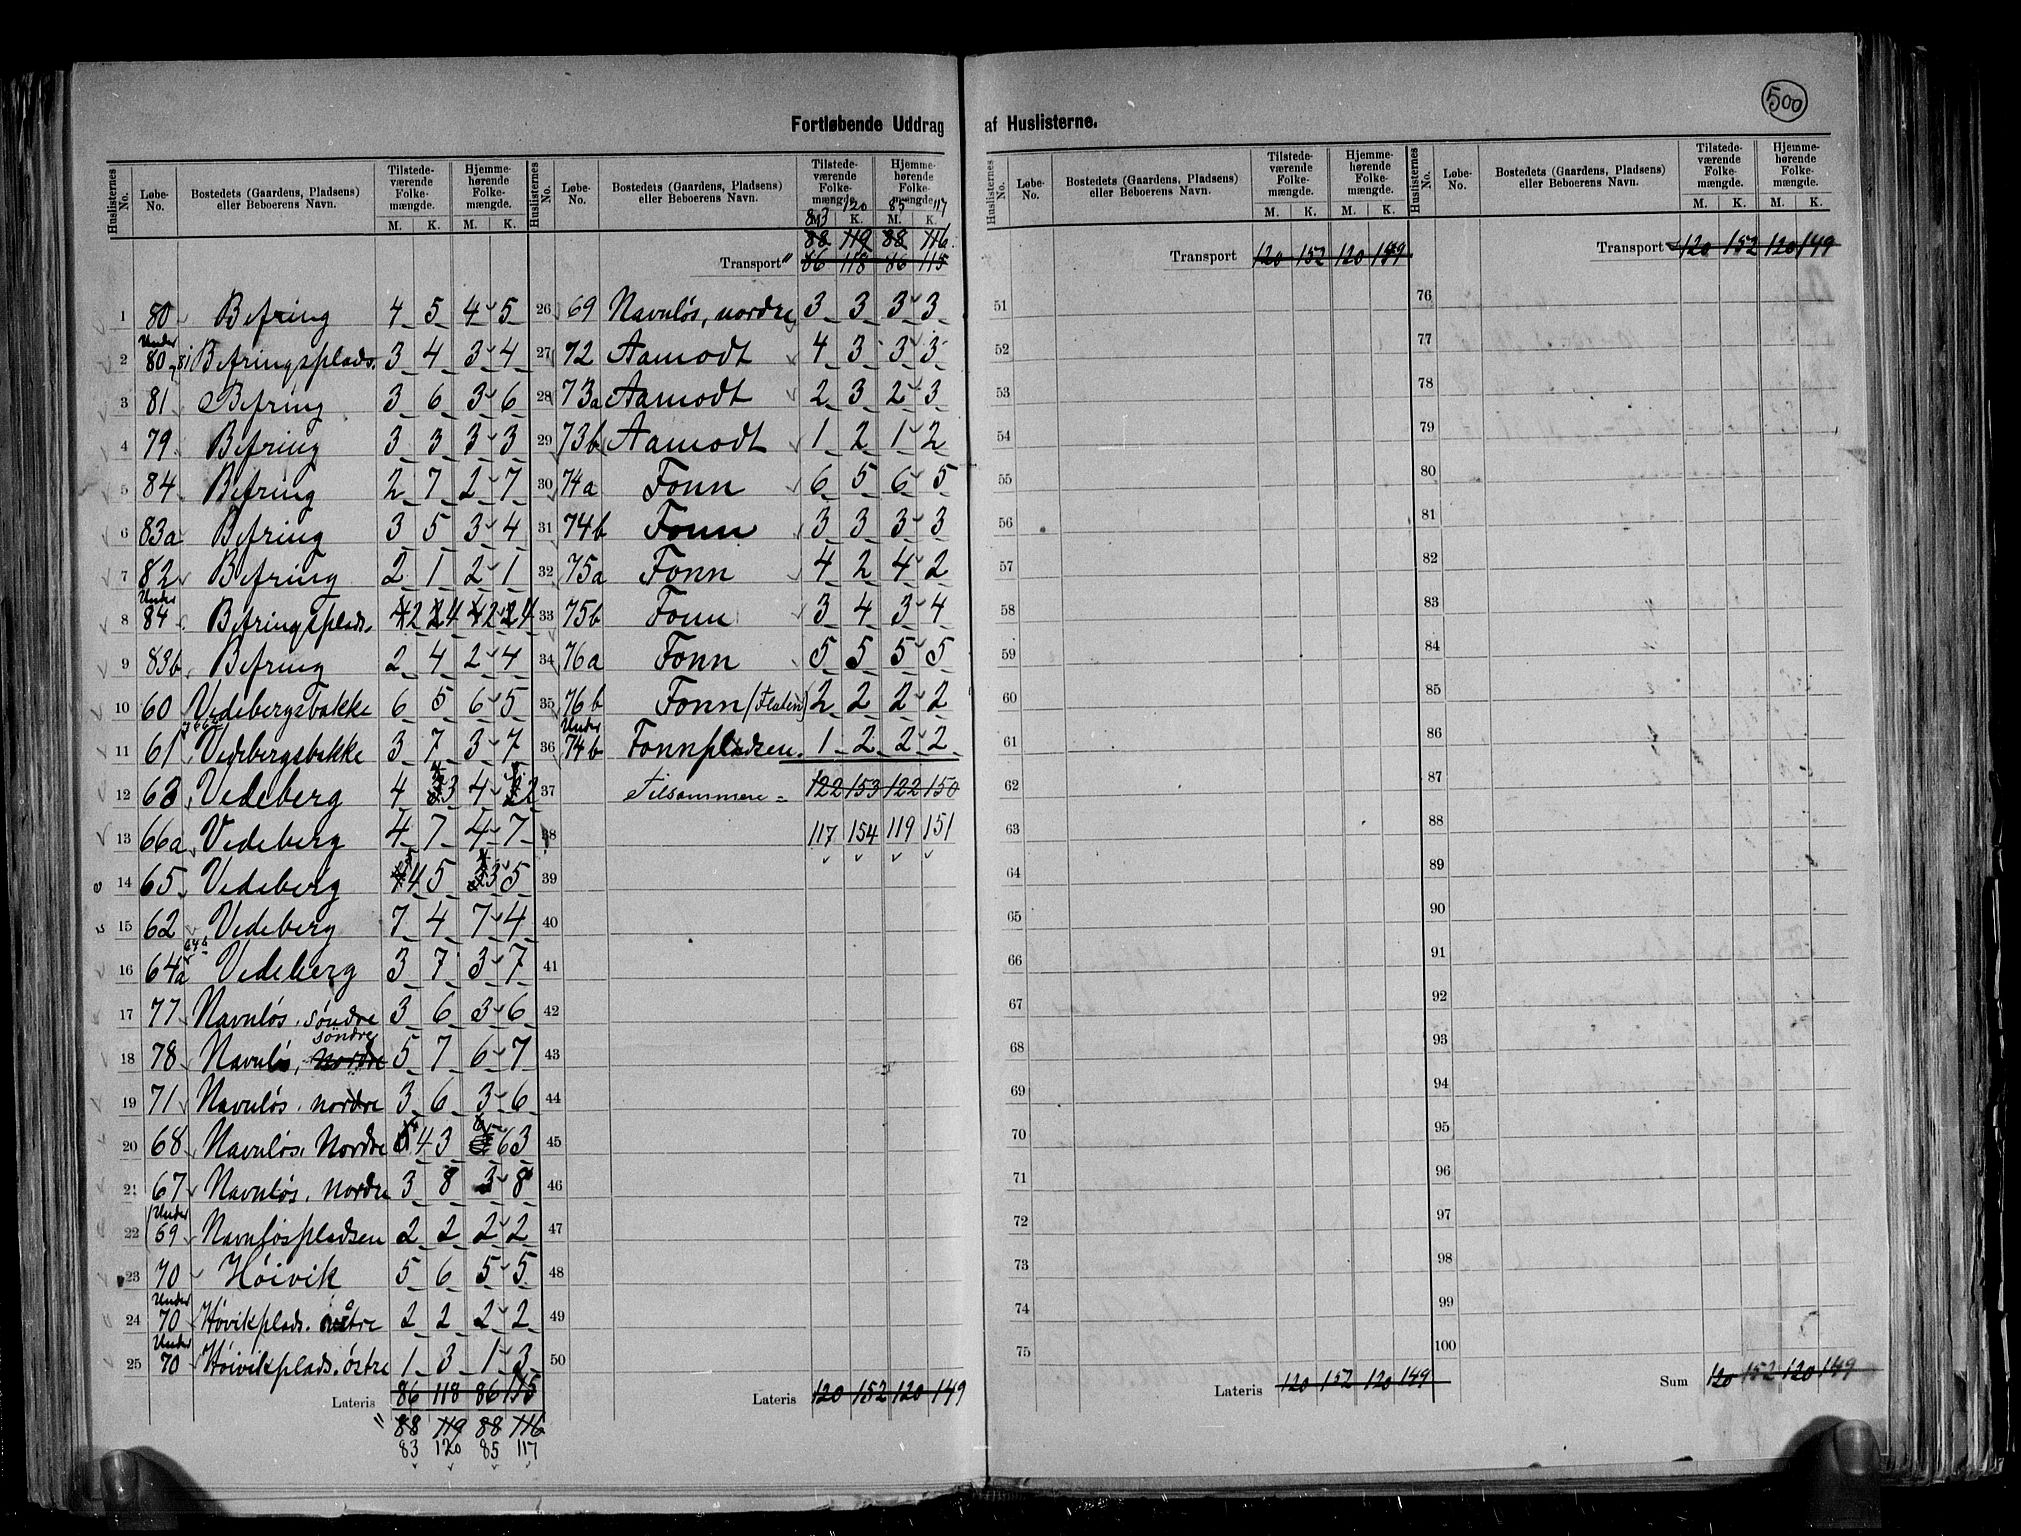 500
Fortløbende Uddrag af Huslisterne.
Huslisternes No. Løbe-No. Bostedets (Gaardens, Pladsens) eller Beboerens Navn. Tilstedeværende Folkemængde. Hjemmehørende Folkemængde.
M. K. M. K.
1 80 Befring 4 5 4 5
2 Under 80, 81 Befringsplads. 3 4 3 4
3 81 Befring 3 6 3 6
4 79 Befring 3 3 3 3
5 84 Befring 2 7 2 7
6 83a Befring 3 5 3 4
7 82 Befring 2 1 2 1
8 Under 84 Befringsplads. 2 4 2 4
9 83b Befring 2 4 2 4
10 60 Vedebergsbakke 6 5 6 5
11 61 Vedebergsbakke 3 7 3 7
12 63 Vedeberg 4 3 4 2
13 66a Vedeberg 4 7 4 7
14 65 Vedeberg 4 5 3 5
15 62 Vedeberg 7 4 7 4
16 64a Vedeberg 3 7 3 7
17 77 Navnløs, søndre 3 6 3 6
18 78 Navnløs, Nordre søndre 5 7 6 7
19 71 Navnløs, nordre 3 6 3 6
20 68 Navnløs, Nordre 4 3 6 3
21 67 Navnløs, nordre 3 8 3 8
22 Under 69 Navnløspladsen 2 2 2 2
23 70 Høivik 5 6 5 5
24 Under 70 Høvikplads. 2 2 2 2
25 Under 70 Høivikplads. østre 1 3 1 3
Lateris 86 118 86 115
" 88 119 88 116
83 120 85 117
Huslisternes No. Løbe-No. Bostedets (Gaardens, Pladsens) eller Beboerens Navn. Tilstedeværende Folkemængde. Hjemmehørende Folkemængde.
M. K. M. K.
83 120 85 117
88 119 88 116
Transport " 86 118 86 115
26 69 Navnløs, nordre 3 3 3 3
27 72 Aamodt 4 3 3 3
28 73a Aamodt 2 3 2 3
29 73b Aamodt 1 2 1 2
30 74a Fonn 6 5 6 5
31 74b Fonn 3 3 3 3
32 75a Fonn 4 2 4 2
33 75b Fonn 3 4 3 4
34 76a Fonn 5 5 5 5
35 76b Fonn (Flaten) 2 2 2 2
36 Under 74b Fonnpladsen. 1 2 2 2
37 Tilsammen = 122 153 122 150
38 117 154 119 151
39
40
41
42
43
44
45
46
47
48
49
50
Lateris 120 152 120 149
Huslisternes No. Løbe-No. Bostedets (Gaardens, Pladsens) eller Beboerens Navn. Tilstedeværende Folkemængde. Hjemmehørende Folkemængde.
M. K. M. K.
Transport 120 152 120 149
51
52
53
54
55
56
57
58
59
60
61
62
63
64
65
66
67
68
69
70
71
72
73
74
75
Lateris 120 152 120 149
Huslisternes No. Løbe-No. Bostedets (Gaardens, Pladsens) eller Beboerens Navn. Tilstedeværende Folkemængde. Hjemmehørende Folkemængde.
M. K. M. K.
Transport 120 152 120 149
76
77
78
79
80
81
82
83
84
85
86
87
88
89
90
91
92
93
94
95
96
97
98
99
100
Sum 120 152 120 149